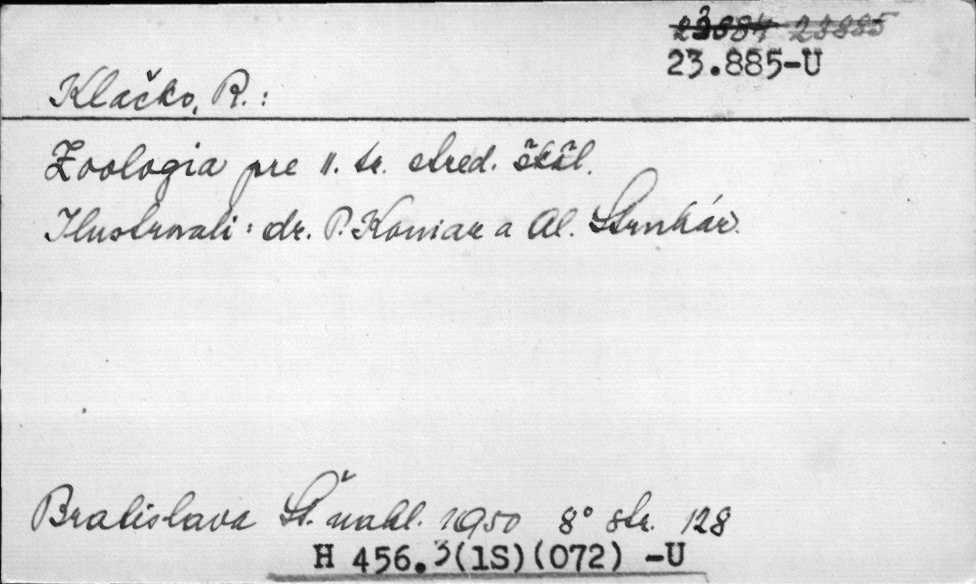 23884 23885
23.885-U
Klačko, R.:
Zoologia pre II. tr. stred. škôl.
Ilustrovali: dr. P. Koniar a Al. Strnhár.
Bratislava Št. nakl. 1950 8° str. 128
H 456.3(1S)(072) -U